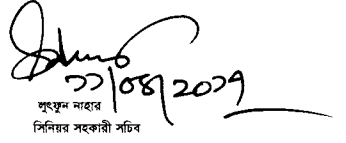 ১১/০৪/২০১৭
লুৎফুন নাহার
সিনিয়র সহকারী সচিব